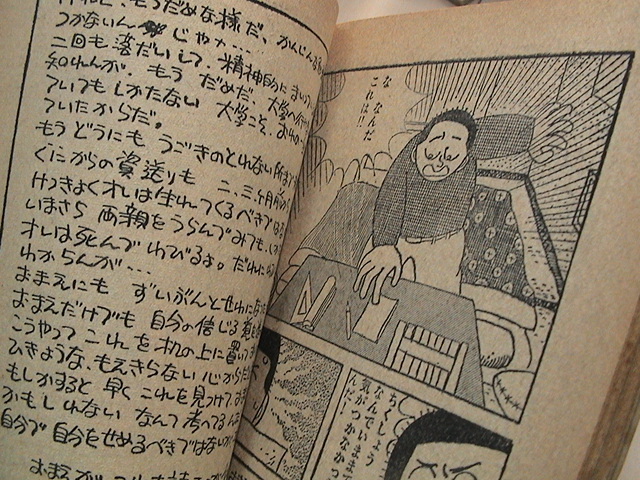 もうだめな様だ、かんじんな
つかないんじゃ……
二回も落だいして、精神的にまいっ
知れんが、もうだめだ、大学へ行
ていてもしかたない 大学こそ、おれの
ていたからだ。
もうどうにも うごきのとれない所まで
くにからの資送りも 二、三、ヶ月
けっきょくオレは生れてくるべきでは
いまさら 両親をうらんでみても、
オレは死んでわびるよ。だれに
わからんが…
おまえにも ずいぶんとせわにな
おまえだけでも 自分の信じる道を
こうやって これを 机の上に置いて
ひきょうな、もえきらない心からだ
もしかすると 早く これを見つけて
かもしれない なんて考えてる
自分で 自分をせめるべきではない
おまえが これを
な なんだ
これは!!
ちくしょう
なんでいままで
気がつかなかっ
んだ!